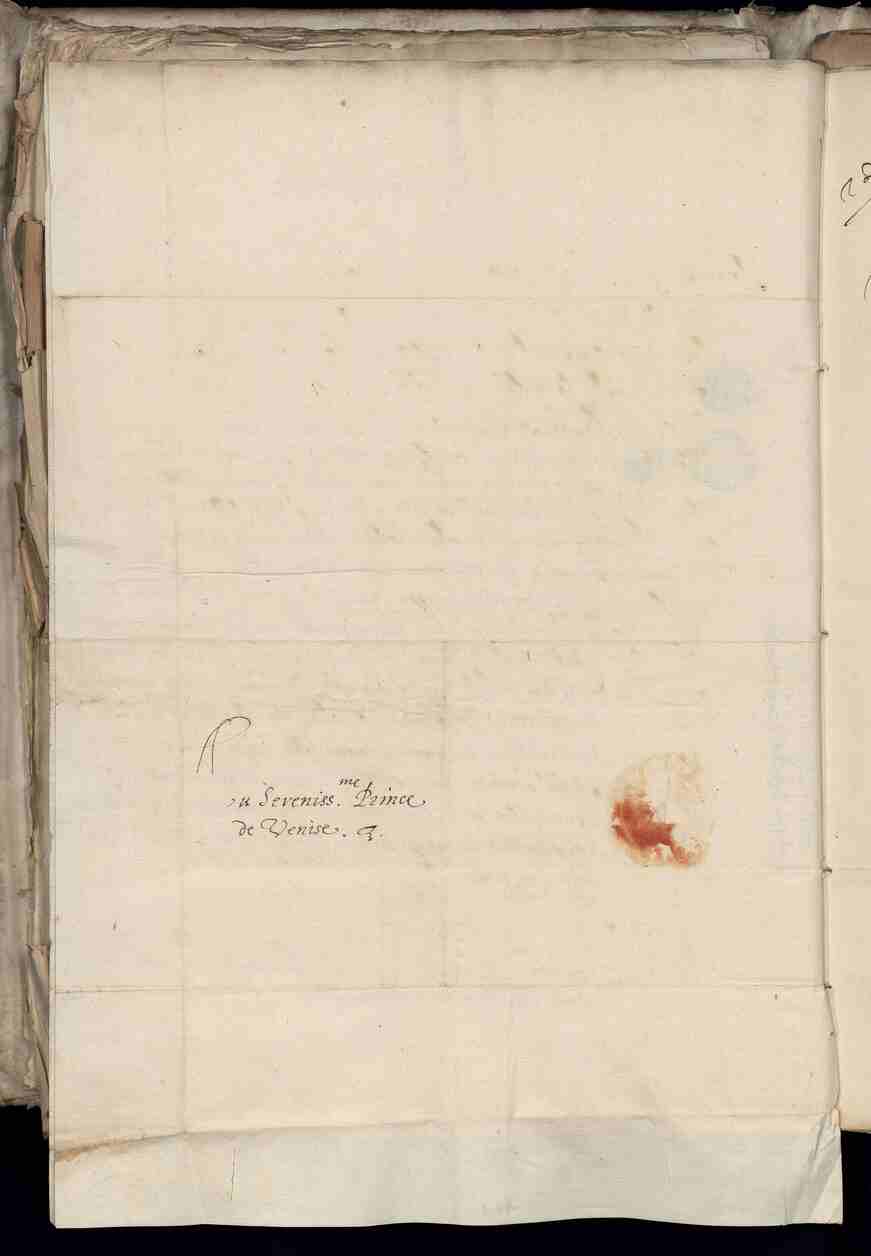 Au Sereniss.me Prince
de Venise. &.